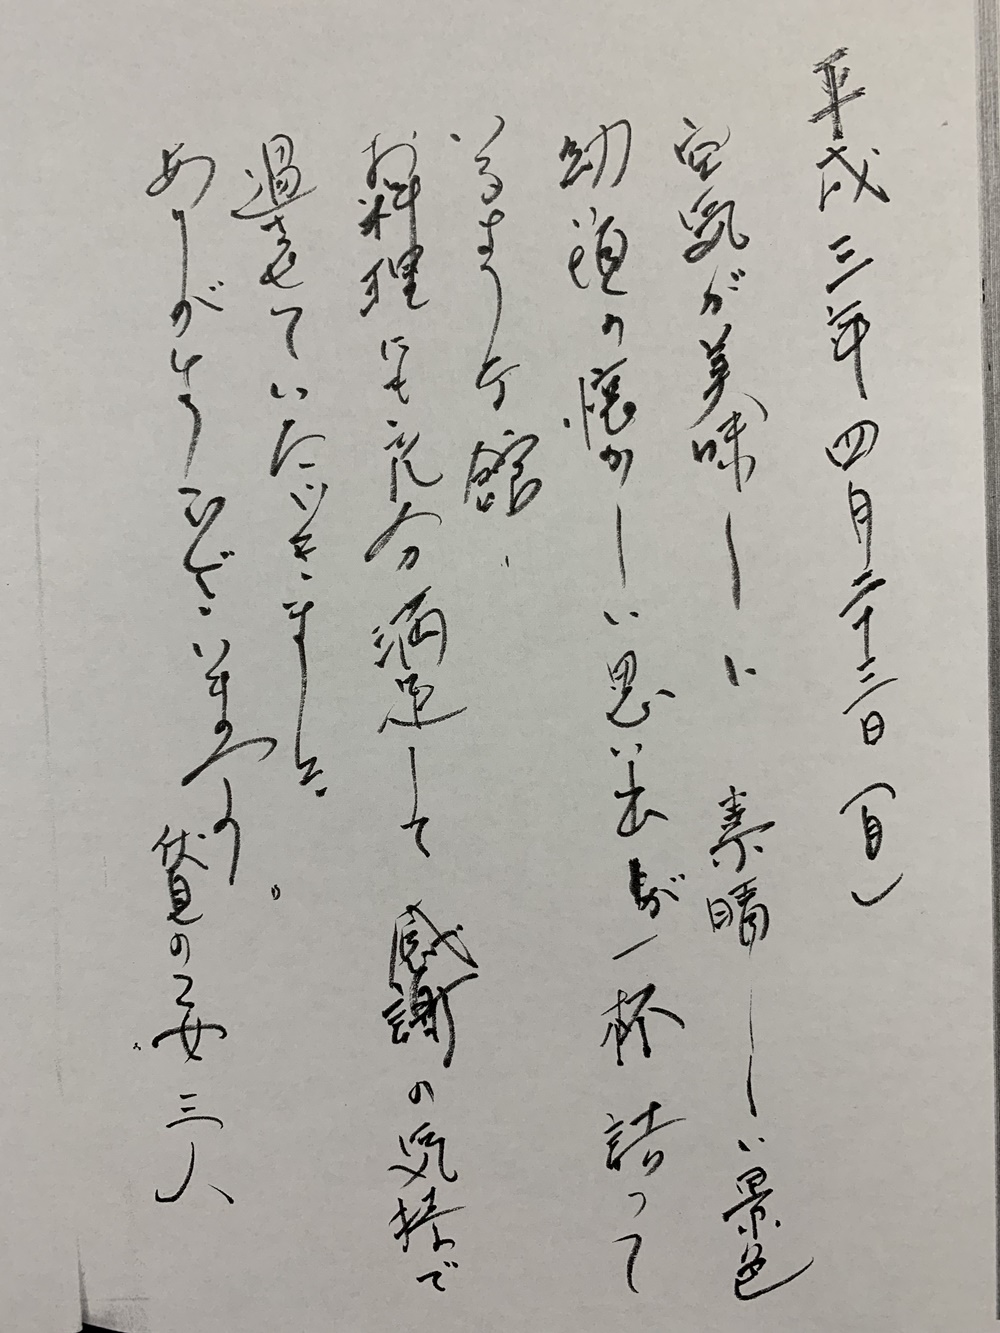 平成三年四月二十三日(月)
空気が美味しい 素晴しい景色
幼頃の懐かしい思い出が一杯詰って
いるようケ館、
お料理にも充分満足して感謝の気持で
過させていただきました
ありがとうございます。
伏見の乙女三人